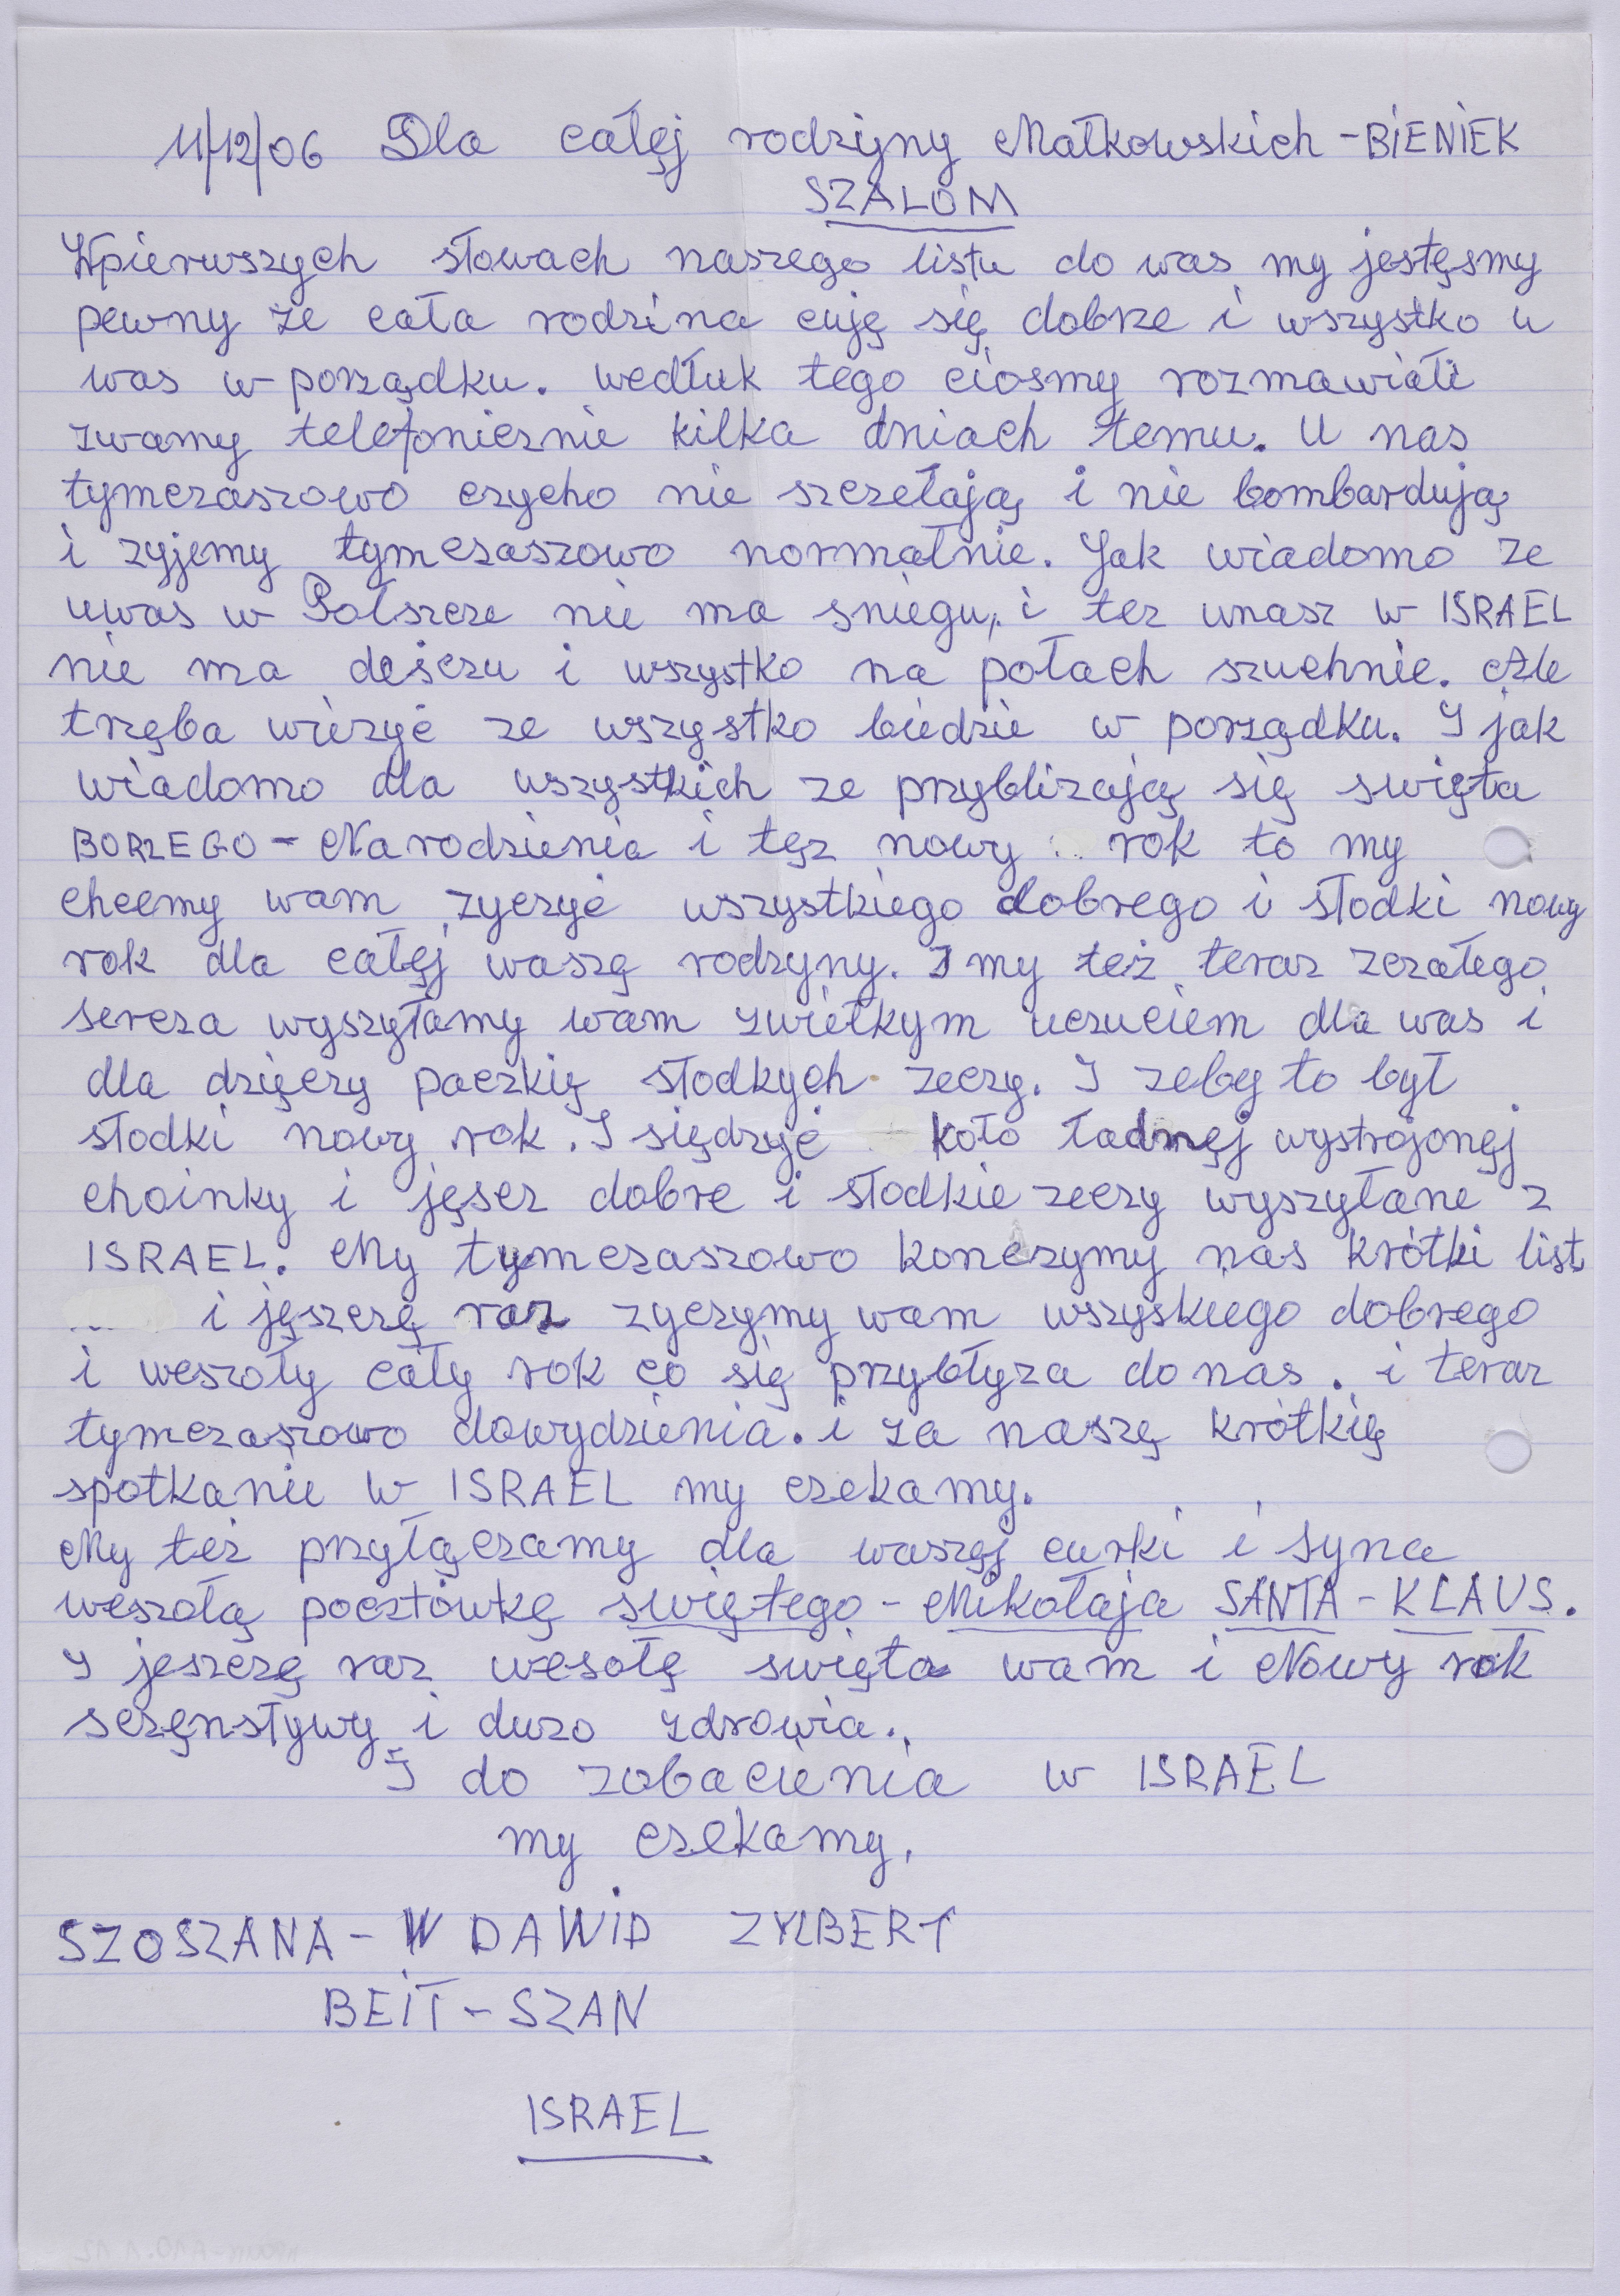 11/12/06 Dla całęj rodziyny Małkowskich - BIENIEK
SZALOM
Wpierwszych słowach naszego listu do was my jestęsmy
pewny ze cała rodzina cuję się dobrze i wszystko u
was w porządku. wedłuk tego ciosmy rozmawiali
zwamy telefonicznie kilka dniach temu. U nas
tymczaszowo czycho nie szczełają i nie bombardują
i zyjemy tymczaszowo normałnie. Jak wiadomo ze
uwas w Polszcze nie ma sniegu, i tez unasz w ISRAEL
nie ma deszczu i wszystko na połach szuchnie. Ale
tręba wierzyć ze wszystko biedzie w porządku. I jak
wiadomo dla wszystkich ze przyblizają się swięta
BORZEGO - Narodzienia i tęz nowy rok to my
chcemy wam zyczyć wszystkiego dobrego i słodki nowy
rok dla całęj waszę rodzyny. I my też teraz zczałego
sercza wyszyłamy wam zwiełkym uczuciem dla was i
dla dzięczy paczkię słodkych zeczy. I zeby to był
słodki nowy rok. I siędzyć koło ładnęj wystrojonęj
choinky i jęscz dobre i słodkie zeczy wyszyłane z
ISRAEL. My tymczaszowo konczymy nas krótki list
i jęszczę raz zyczymy wam wszyskiego dobrego
i weszoły cały rok co się przybłyza do nas. i teraz
tymczaszowo dowydzienia. i za naszę krótkię
spotkanie w ISRAEL my czekamy.
My też przyłączamy dla waszęj curki i syna
weszołą pocztówkę swiętego - Mikołaja SANTA - KLAUS.
I jeszczę raz wesołę swięta wam i Nowy rok
sczęnstywy i duzo zdrowia.
I do zobacienia w ISRAEL
my czekamy.
SZOSZANA - W DAWID ZYLBERT
BEIT - SZAN
ISRAEL